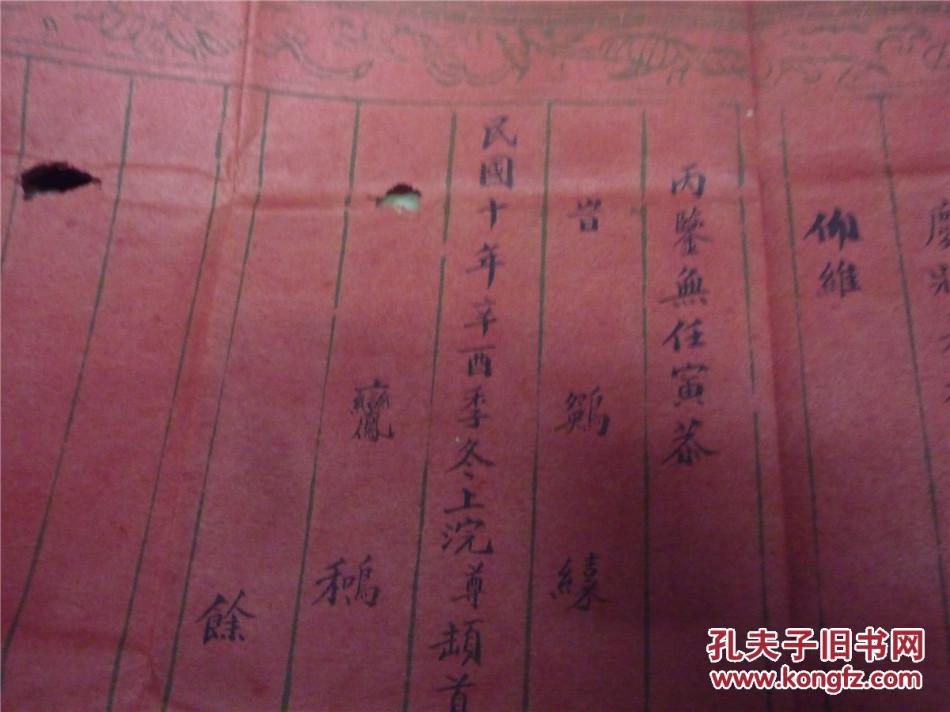 仰維
丙鑒無任寅恭
旹
民國十年辛酉季冬上浣尊首
餘
孔夫子旧书网
www.kongfz.com